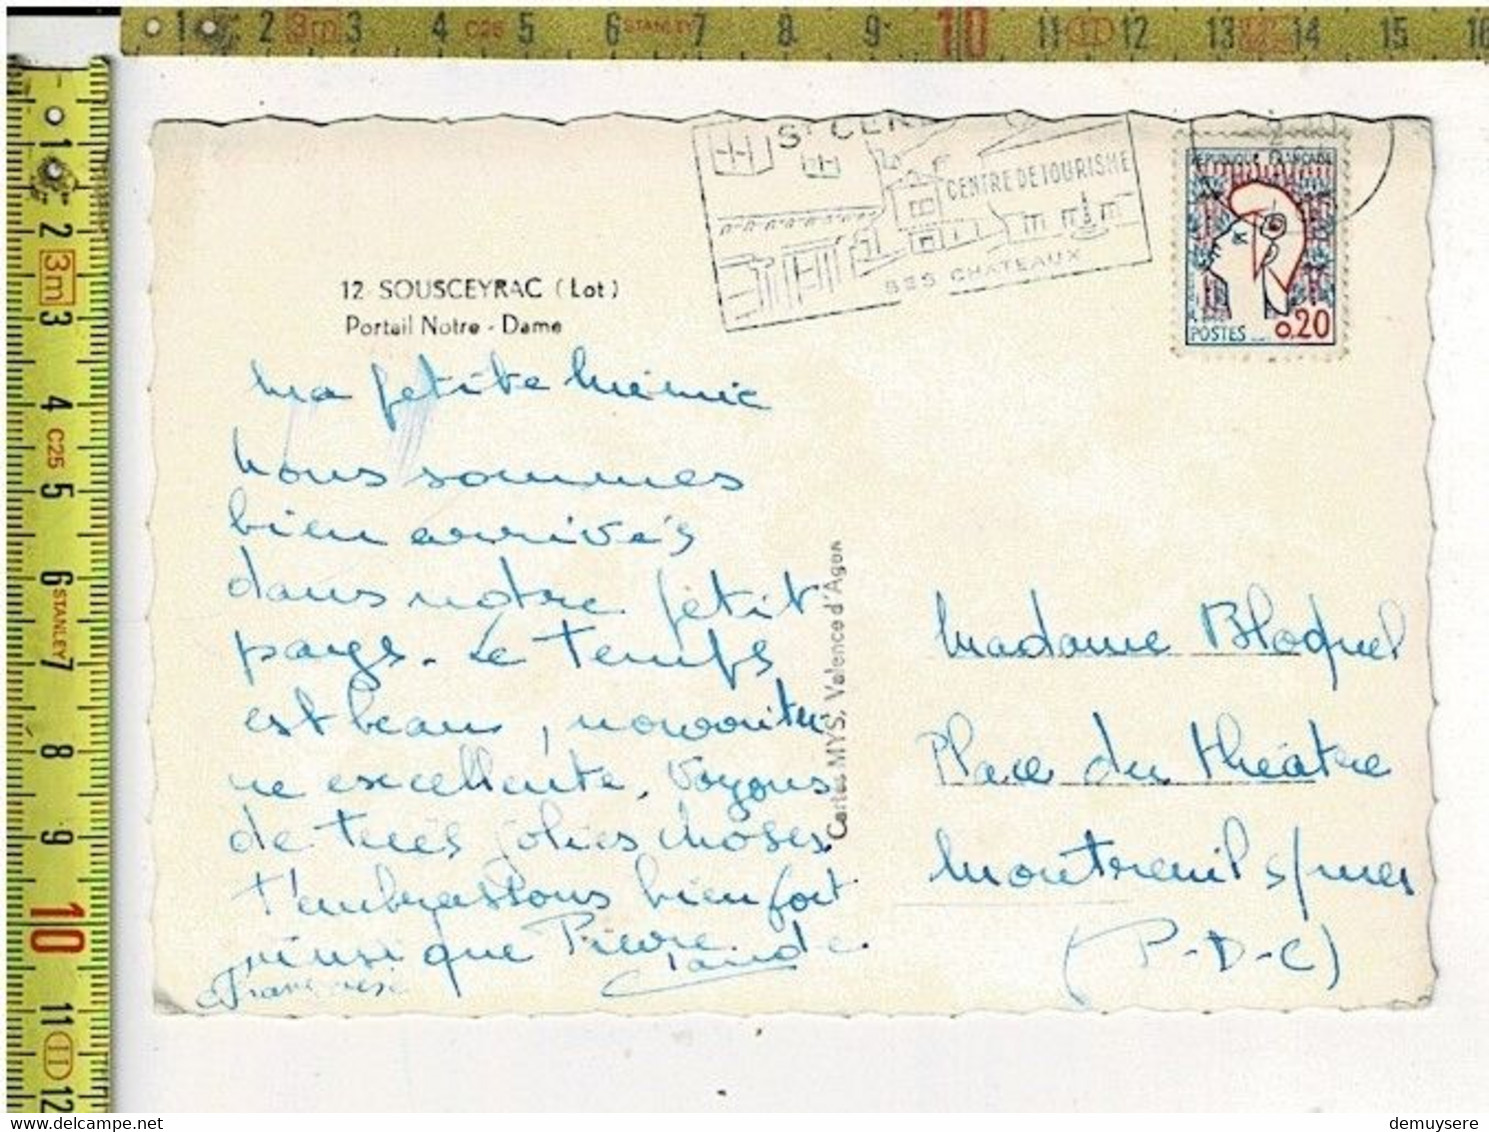 1 2 3m 3 4 C25 5 6 STANLEY 7 8 9 10 11 12 13 14 15 16
1 2 3m 3 4 C25 5 6 STANLEY 7 8 9 10 11 12
ST CERE
CENTRE DE TOURISME
SES CHATEAUX
REPUBLIQUE FRANÇAISE
POSTES 0,20
12 SOUSCEYRAC (Lot)
Portail Notre-Dame
Ma petite Mémie
Nous sommes
bien arrivés
dans notre petit
pays. Le temps
est beau, nourritu-
re excellente. Voyons
de très jolies choses
t'embrassons bien fort
ainsi que Pierre
Claude
Françoise
Cartes MYS, Valence d'Agen
Madame Bloquel
Place du théâtre
Montreuil s/mer
(P-D-C)
demuysere